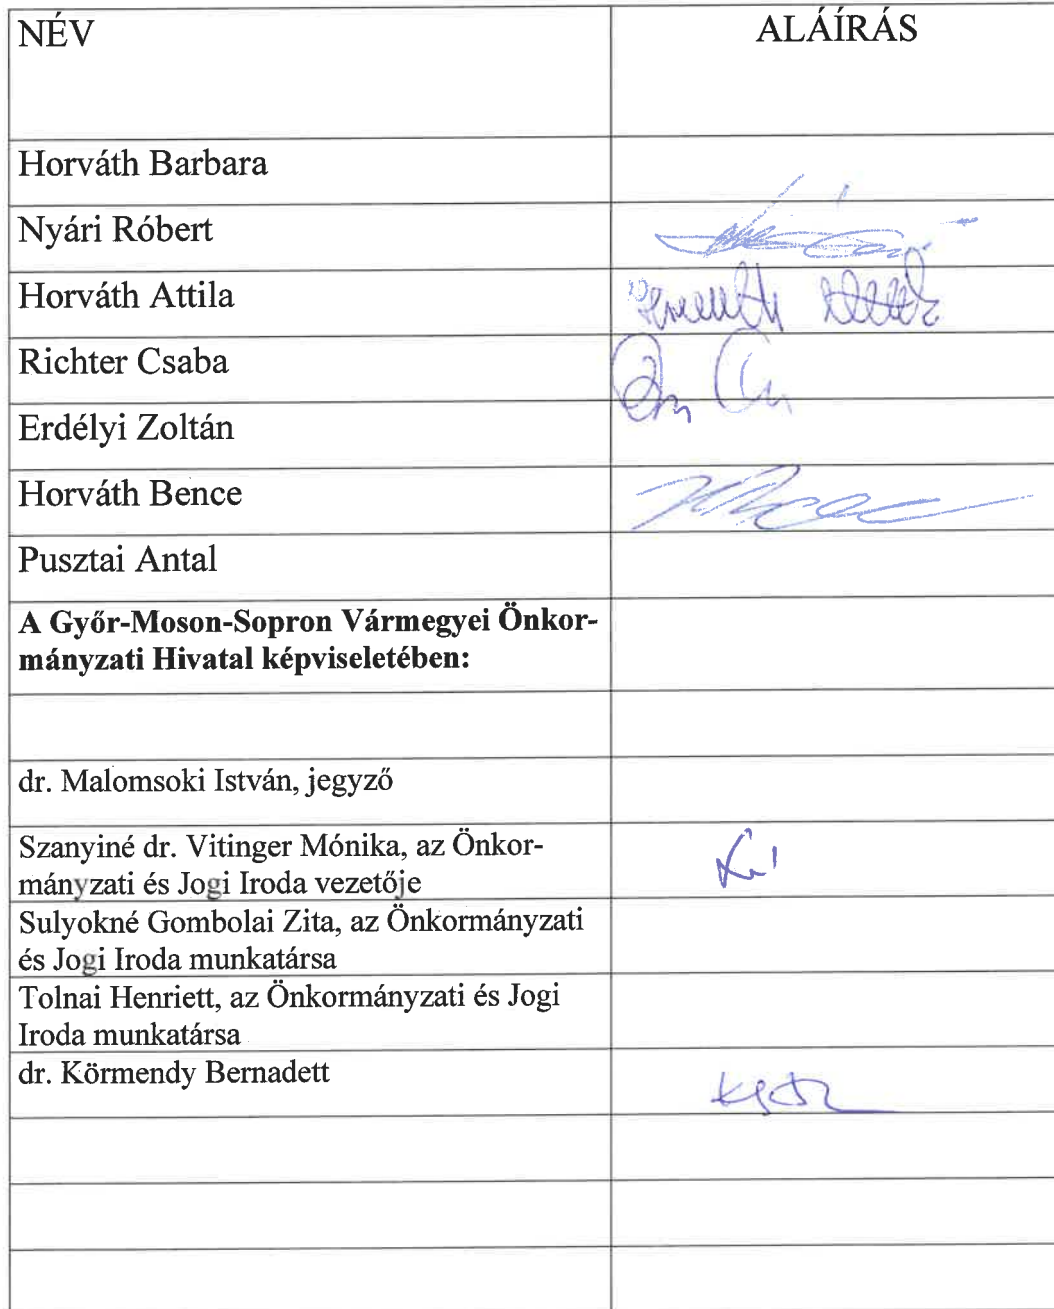 NÉV ALÁÍRÁS
Horváth Barbara
Nyári Róbert
Horváth Attila
Richter Csaba
Erdélyi Zoltán
Horváth Bence
Pusztai Antal
A Győr-Moson-Sopron Vármegyei Önkor-
mányzati Hivatal képviseletében:
dr. Malomsoki István, jegyző
Szanyiné dr. Vitinger Mónika, az Önkor-
mányzati és Jogi Iroda vezetője
Sulyokné Gombolai Zita, az Önkormányzati
és Jogi Iroda munkatársa
Tolnai Henriett, az Önkormányzati és Jogi
Iroda munkatársa
dr. Körmendy Bernadett